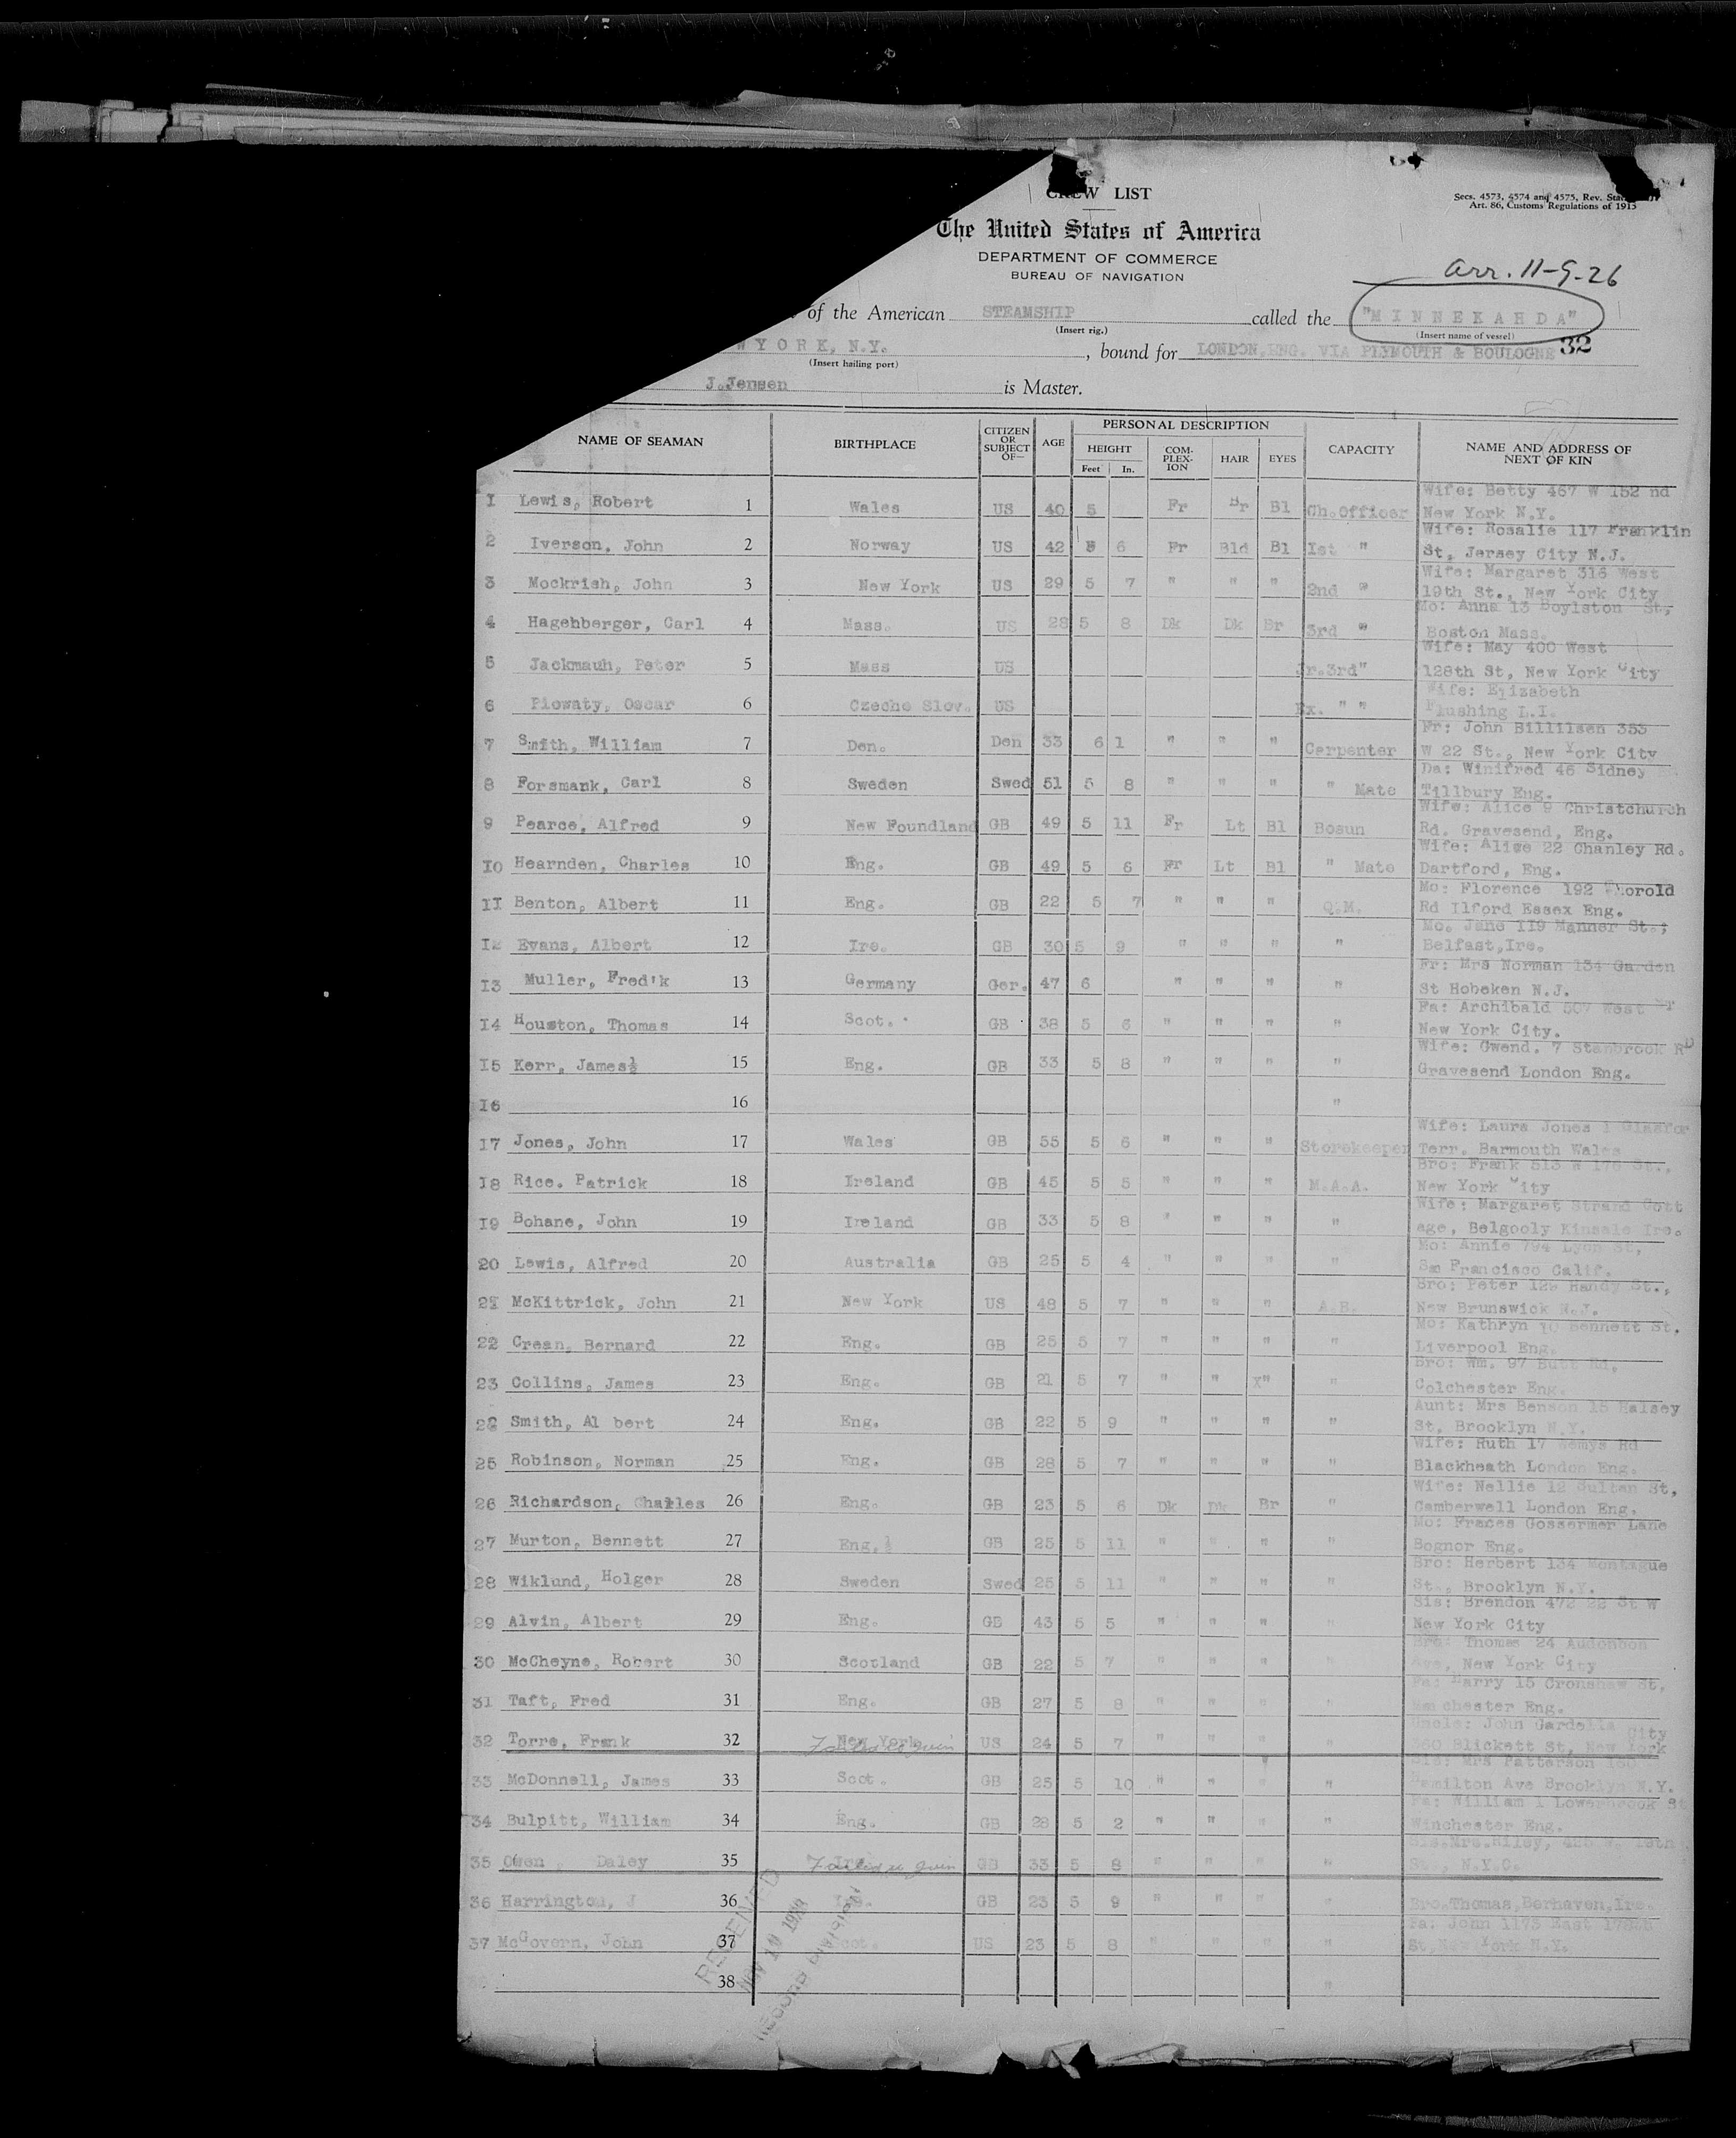 CREW LIST
Secs. 4573, 4574 and 4575, Rev. Stat.
Art. 86, Customs Regulations of 1915
The United States of America
DEPARTMENT OF COMMERCE
BUREAU OF NAVIGATION
arr. 11-9-26
of the American STEAMSHIP called the "MINNEKAHDA"
(Insert rig.) (Insert name of vessel)
W YORK, N.Y. , bound for LONDON, ENG. VIA PLYMOUTH & BOULOGNE 32
(Insert hailing port)
J.Jensen is Master.
NAME OF SEAMAN BIRTHPLACE CITIZEN OR SUBJECT OF— AGE PERSONAL DESCRIPTION HEIGHT Feet In. COM-PLEX-ION HAIR EYES CAPACITY NAME AND ADDRESS OF NEXT OF KIN
1 Lewis, Robert 1 Wales US 40 5 Fr Br Bl Ch.Officer Wife: Betty 467 W 152 nd
New York N.Y.
2 Iverson, John 2 Norway US 42 5 6 Fr Bld Bl 1st " Wife: Rosalie 117 Franklin
St, Jersey City N.J.
3 Mockrish, John 3 New York US 29 5 7 " " " 2nd " Wife: Margaret 316 West
19th St., New York City
4 Hagehberger, Carl 4 Mass. US 28 5 8 Dk Dk Br 3rd " Mo: Anna 13 Boylston St,
Boston Mass.
5 Jackmauh, Peter 5 Mass US Jr.3rd" Wife: May 400 West
128th St, New York City
6 Piowaty, Oscar 6 Czeche Slov. US Ex. " " Wife: Elizabeth
Flushing L.I.
7 Smith, William 7 Den. Den 33 6 1 " " " Carpenter Fr: John Billilsen 353
W 22 St., New York City
8 Forsmank, Carl 8 Sweden Swed 51 5 8 " " " " Mate Da: Winifred 46 Sidney
Tillbury Eng.
9 Pearce, Alfred 9 New Foundland GB 49 5 11 Fr Lt Bl Bosun Wife: Alice 9 Christchurch
Rd. Gravesend, Eng.
10 Hearnden, Charles 10 Eng. GB 49 5 6 Fr Lt Bl " Mate Wife: Aliwe 22 Chanley Rd.
Dartford, Eng.
11 Benton, Albert 11 Eng. GB 22 5 7 " " " Q.M. Mo: Florence 192 Thorold
Rd Ilford Essex Eng.
12 Evans, Albert 12 Ire. GB 30 5 9 " " " " Mo. Jane 119 Manner St.,
Belfast,Ire.
13 Muller, Fred'k 13 Germany Ger. 47 6 " " " " Fr: Mrs Norman 134 Garden
St Hoboken N.J.
14 Houston, Thomas 14 Scot. GB 38 5 6 " " " " Fa: Archibald 507 West
New York City.
15 Kerr, James½ 15 Eng. GB 33 5 8 " " " " Wife: Gwend. 7 Stanbrook RD
Gravesend London Eng.
16 16 "
17 Jones, John 17 Wales GB 55 5 6 " " " Storekeeper Wife: Laura Jones 1 Glasfor
Terr. Barmouth Wales
18 Rice. Patrick 18 Ireland GB 45 5 5 " " " M.A.A. Bro: Frank 513 W 178 St.,
New York City
19 Bohane, John 19 Ireland GB 33 5 8 " " " " Wife: Margaret Strand Cott
age, Belgooly Kinsale Ire.
20 Lewis, Alfred 20 Australia GB 25 5 4 " " " " Mo: Annie 794 Lyon St,
San Francisco Calif.
21 McKittrick, John 21 New York US 48 5 7 " " " A.B. Bro: Peter 129 Handy St.,
New Brunswick N.J.
22 Crean, Bernard 22 Eng. GB 25 5 7 " " " " Mo: Kathryn 10 Bennett St.
Liverpool Eng.
23 Collins, James 23 Eng. GB 21 5 7 " " X" " Bro: Wm. 97 Butt Rd,
Colchester Eng.
24 Smith, Al bert 24 Eng. GB 22 5 9 " " " " Aunt: Mrs Benson 15 Halsey
St, Brooklyn N.Y.
25 Robinson, Norman 25 Eng. GB 28 5 7 " " " " Wife: Ruth 17 Wemys Rd
Blackheath London Eng.
26 Richardson, Charles 26 Eng. GB 23 5 6 Dk Dk Br " Wife: Nellie 12 Sultan St,
Camberwell London Eng.
27 Murton, Bennett 27 Eng.½ GB 25 5 11 " " " " Mo: Fraces Gossermer Lane
Bognor Eng.
28 Wiklund, Holger 28 Sweden Swed 25 5 11 " " " " Bro: Herbert 134 Montague
St., Brooklyn N.Y.
29 Alvin, Albert 29 Eng. GB 43 5 5 " " " " Sis: Brendon 472 22 St W
New York City
30 McCheyne, Robert 30 Scotland GB 22 5 7 " " " " Bro: Thomas 24 Audonbon
Ave, New York City
31 Taft, Fred 31 Eng. GB 27 5 8 " " " " Fa: Harry 15 Cronshaw St,
Manchester Eng.
32 Torre, Frank 32 New York Failed to join US 24 5 7 " " " " Uncle: John Gardella City
Blickett St, New York
33 McDonnell, James 33 Scot. GB 25 5 10 " " " " Sis: Mrs Patterson
Hamilton Ave Brooklyn N.Y.
34 Bulpitt, William 34 Eng. GB 28 5 2 " " " " Fa: William 1 Lowerbrook St
Winchester Eng.
35 Owen , Daley 35 Ire. Failed to join GB 33 5 8 " " " " Sis.Mrs.Riley, 425 W. 18th
St., N.Y.C.
36 Harrington, J 36 Ire. GB 23 5 9 " " " " Bro.Thomas,Berhaven,Ire.
37 McGovern, John 37 Scot. US 23 5 8 " " " " Fa: John 1173 East
St,New York N.Y.
38 "
RECEIVED
NOV 10
SECOND DIVISION